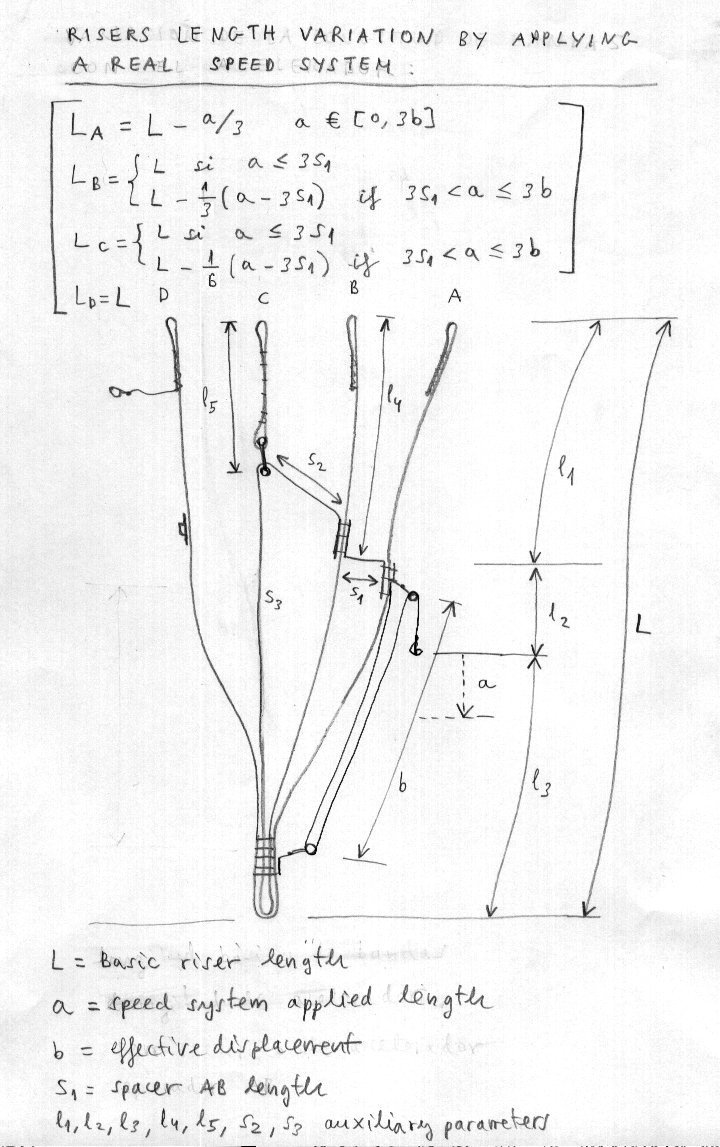 RISERS LENGTH VARIATION BY APPLYING
A REAL SPEED SYSTEM.
L_A = L - a/3   a € [0, 3b]
L_B = { L si a ≤ 3S1
L - 1/3 (a - 3S1) if 3S1 < a ≤ 3b
L_C = { L si a ≤ 3S1
L - 1/6 (a - 3S1) if 3S1 < a ≤ 3b
L_D = L
D C B A
l5
l4
S2
l1
S1
S3
l2
L
a
b
l3
L = Basic riser length
a = speed system applied length
b = effective displacement
S1 = spacer AB length
l1, l2, l3, l4, l5, S2, S3 auxiliary parameters